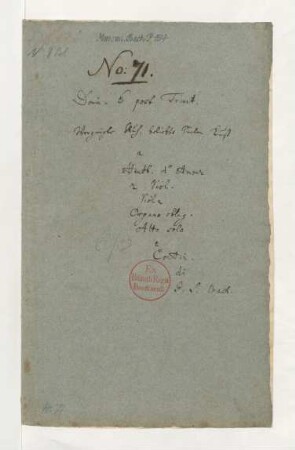 No: 71.
Domin. 6 post Trinit.
Vergnügte Ruh, beliebte Seelen Lust
a
Hautb. d'Amour
2 Viol.
Viola
Organo oblig.
Alto solo
e
Contin.
di
J. S. Bach.
Ex
Biblioth. Regia
Berolinensi.